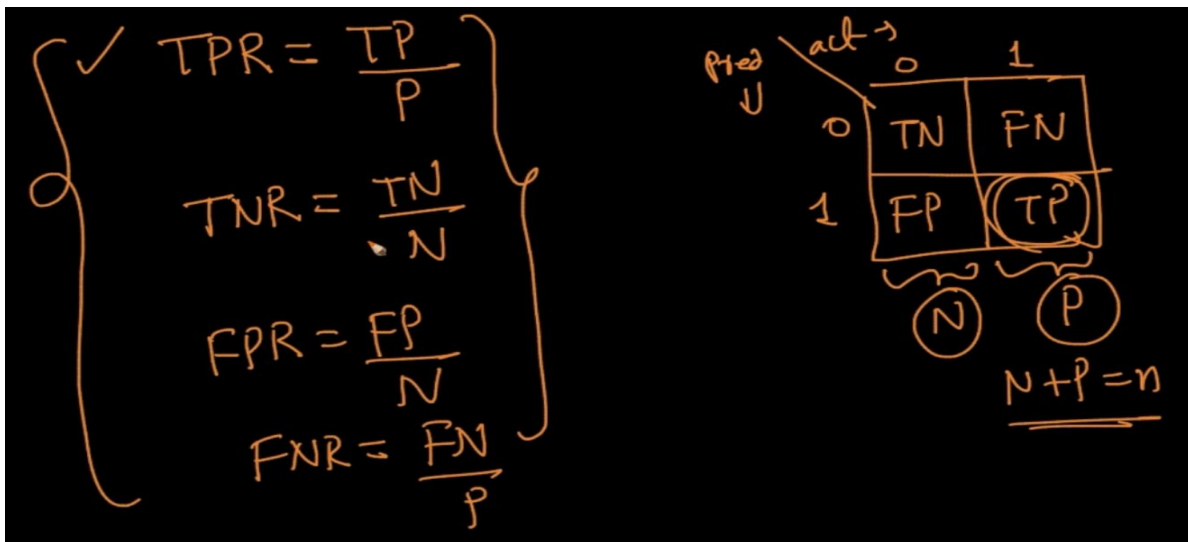 ✓ TPR = TP / P
TNR = TN / N
FPR = FP / N
FNR = FN / P
act →
pred ↓
0 1
0 TN FN
1 FP TP
N P
N + P = n